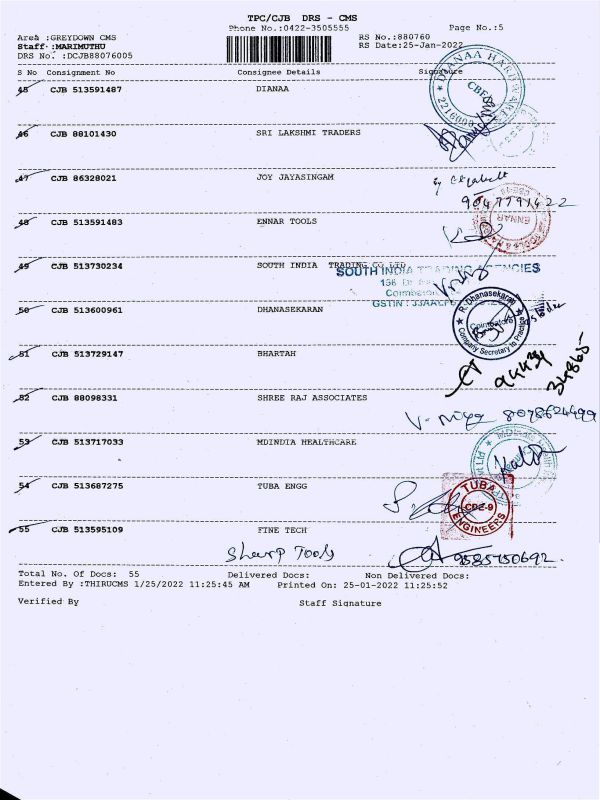 TPC/CJB DRS - CMS
Phone No.:0422-3505555
Page No.:5
Area :GREYDOWN CMS
RS No.:880760
Staff :MARIMUTHU
RS Date:25-Jan-2022
DRS No. :DCJB88076005
S No Consignment No Consignee Details Signature
45 CJB 513591487 DIANAA
DIANAA HARDWARE
CBE
2216000
46 CJB 88101430 SRI LAKSHMI TRADERS
47 CJB 86328021 JOY JAYASINGAM
48 CJB 513591483 ENNAR TOOLS
ENNAR
49 CJB 513730234 SOUTH INDIA TRADING CO LTD
SOUTH INDIA TRADING AGENCIES
50 CJB 513600961 DHANASEKARAN
R. Dhanasekaran
Coimbatore
Company Secretary to Practice
51 CJB 513729147 BHARTAH
52 CJB 88098331 SHREE RAJ ASSOCIATES
8078624499
53 CJB 513717033 MDINDIA HEALTHCARE
54 CJB 513687275 TUBA ENGG
TUBA
CBE-9
ENGINEERS
55 CJB 513595109 FINE TECH
Sharp Tools
9585750692.
Total No. Of Docs: 55 Delivered Docs: Non Delivered Docs:
Entered By :THIRUCMS 1/25/2022 11:25:45 AM Printed On: 25-01-2022 11:25:52
Verified By Staff Signature